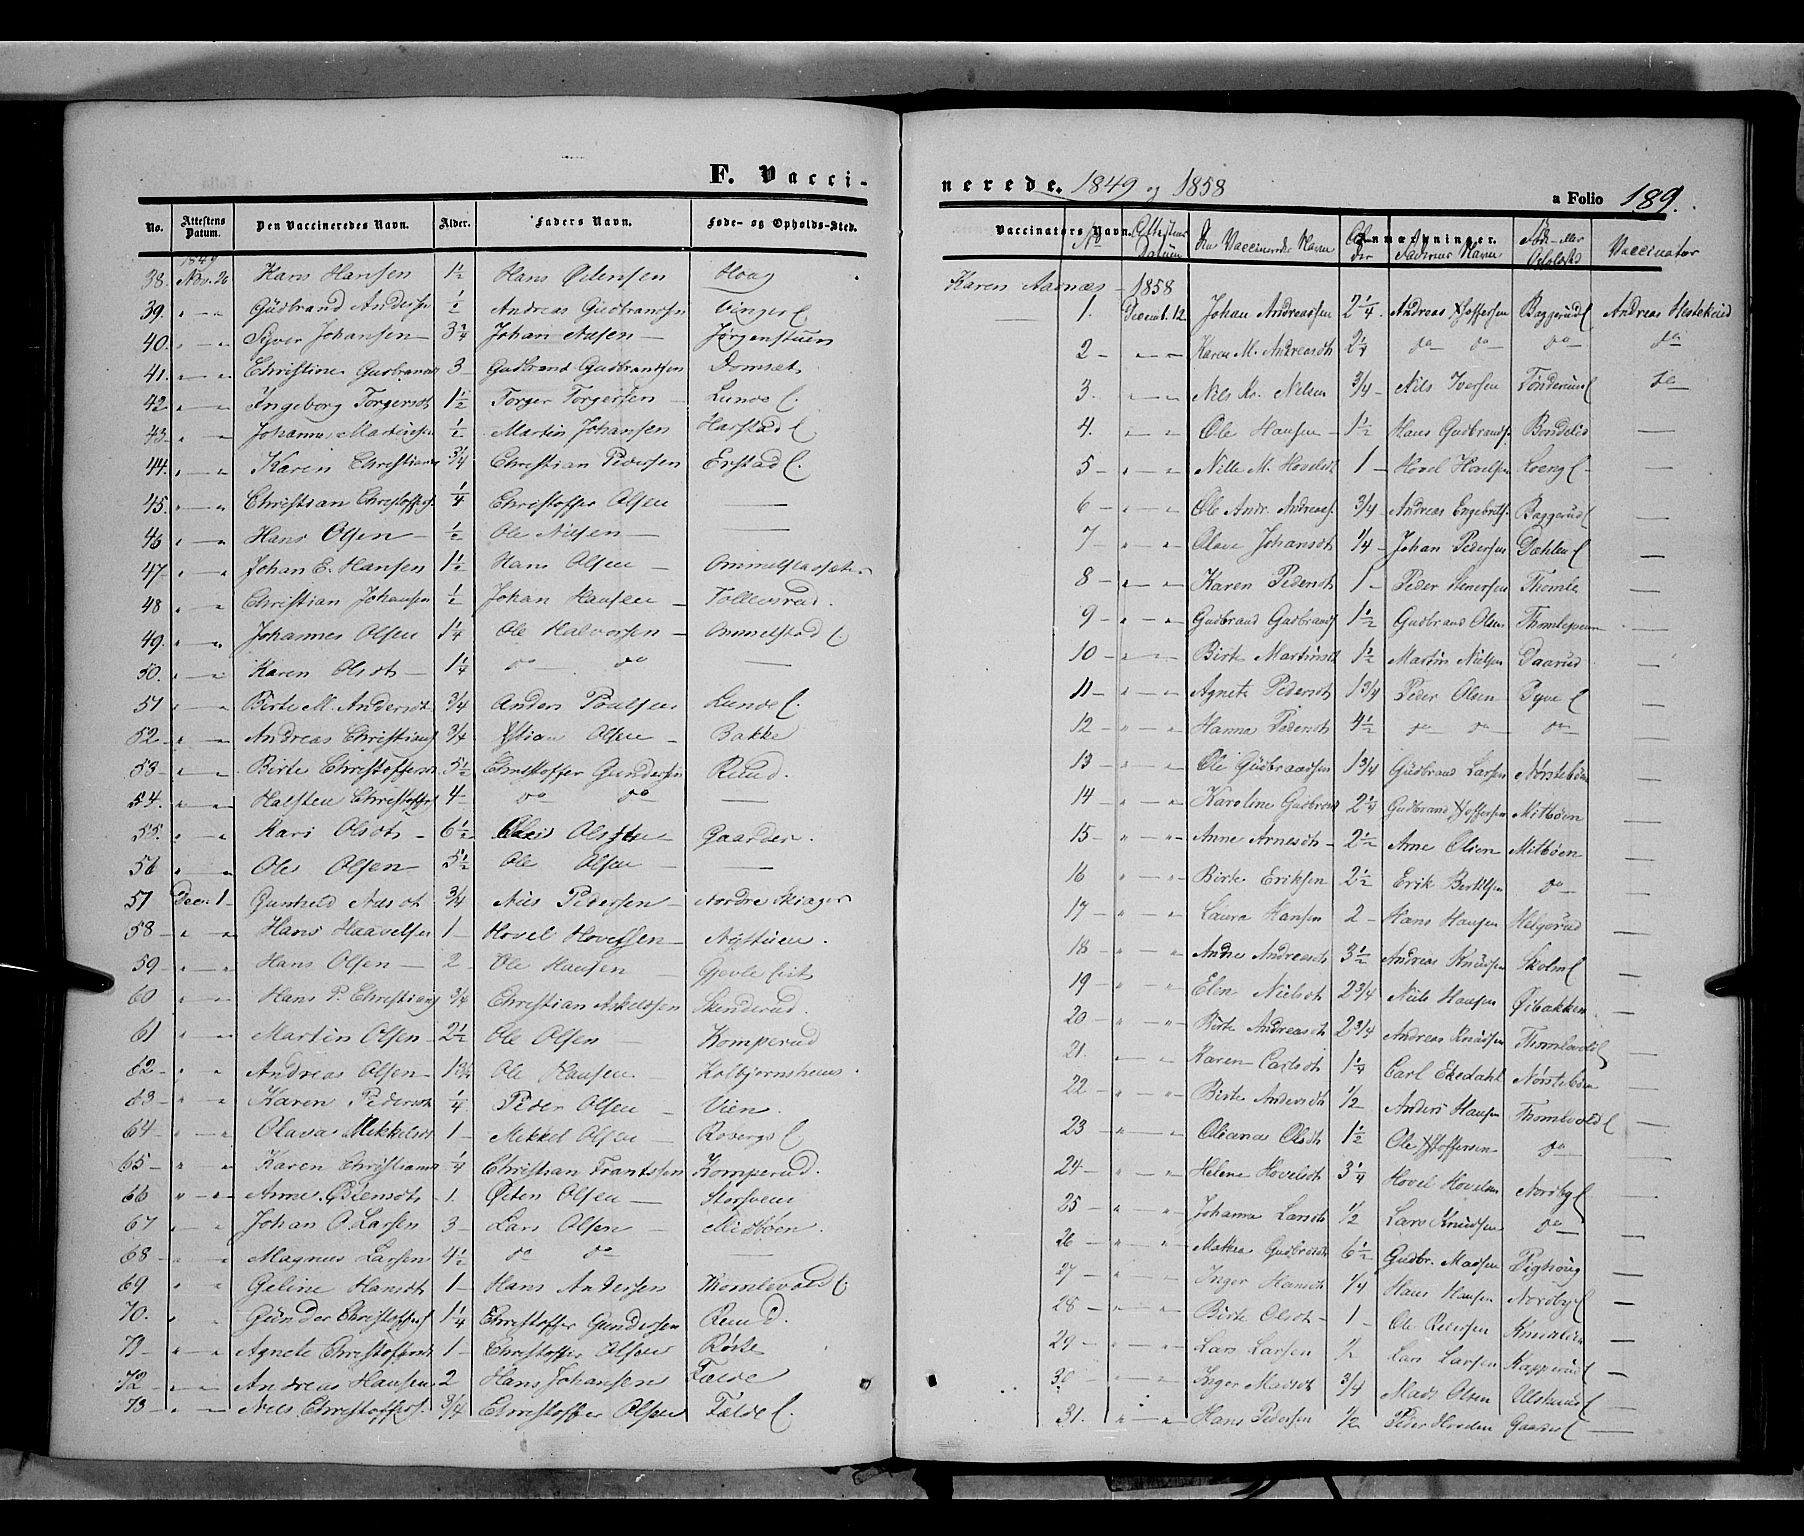 F. Vacci-
No. Attestens Datum. Den Vaccineredes Navn. Alder. Faders Navn. Føde- og Opholds-Sted.
1849
38. Nov. 26 Hans Hansen 1½ Hans Østensen Hoag
39. " — " Gudbrand Andersn ½ Andreas Gudbrandsn Vinger E.
40. " — " Syver Johansen — 3¾ Johan Nilsen — Jørgenstuen
41. " — " Christine Gudbrands 3 — Gudbrand Gudbrandsen Domset
42. " — " Ingeborg Torgersdt 1½ Torger Torgersen — Lunde E.
43. " — " Johannes Martinsen ½ Martin Johansen Harstad E.
44. " — " Karen Christians ¾ Christian Pedersen Erstad E.
45. " — " Christian Christoffers. ¼ Christoffer Olsen —
46 " — " Hans Olsen — ½ Ole Nilsen — —
47 " — " Johan E. Hansen 1½ Hans Olsen — Ommelstadset
48 " — " Christian Johansen ½ Johan Hansen — Tollersrud.
49. " — " Johannes Olsen 1¼ Ole Halvorsen — Ommelstad E.
50. " — " Karen Olsdt — 1¼ do do —
51 " — " Birte M. Andersdt ¾ Anders Poulsen Lunde E.
52 — " — " Andreas Christians ¾ Xstian Olsen — Bakke
53 — " — " Birte Christoffersd 5½ Christoffer Gundersen Ruud.
54. " — " Halsten Christoffers 4 — do do —
55. " — " Kari Olsdt — 6½ Olsen Gaarder.
56 " — " Ole Olsen 5½ Ole Olsen —
57 Dec. 1 — Gunhild Nilsdt ¾ Nils Pedersen — Nordre Skiager
58 — " — " Hans Haavelsen 1 — Hovel Hovelsen — Nystuen.
59 " — " Hans Olsen — 2 Ole Hansen — Gjevle eit
60 " — " Hans P. Christians ¾ Christian Askeldsen Skenderud.
61 " — " Martin Olsen — 2½ Ole Olsen — Komperud
62 — " " Andreas Olsen — 1¾ Ole Hansen — Kolbjørnshuus.
63 — " — " Karen Pedersdt ¼ Peder Olsen — Vien.
64 — " — " Olava Mikkelsdt 1 — Mikkel Olsen — Rosergs E.
65 — " — " Karen Christians ¼ Christian Frantssen Komperud.
66 " — " Anne Østensdt — 1. Østen Olsen — Storsveen
67 " — " Johan O. Larsen 3 — Lars Olsen — Midbøen.
68 — " " Magnus Larsen 4½ do do —
69 " " Geline Hansdt 1 — Hans Andersen Thomlevold E.
70. " Gunder Christoffers 1¼ Christoffer Gundersen Ruud.
71 — " — " Agnete Christoffersd 1 — Christoffer Olsen Røste
72 — " — " Andreas Hansen 2 Hans Johansen Fælde
73 — " — " Nils Christoffers. ¾ Christoffer Olsen Fælde E.
nerede. 1849 og 1858 a Folio 189.
Vaccinators Navn. Anmærkninger.
No Attestens Datum Den Vaccinerede Navn Alder Faderens Navn Føde- eller Opholdsted Vaccinator
Karen Aasnæs — 1858
1. Decemb. 12 Johan Andreassen 2¼ Andreas Xstoffersen Baggerud E Andreas Hestekind
2 — " — " Karen M. Andreasdt 2¼ do do do do
3. " — " Nils Kr. Nielsen ¾ — Nils Iversen Tønderud E do
4. " — " Ole Hansen — 1½ Hans Gudbrands. Bondelid —
5 — " — " Nille M. Hovelsdt 1 — Hovel Hovelsen Loeng E —
6 — " — " Ole Andr. Andreas. ¾ Andreas Engebrets. Baggerud E —
7 — " — " Olave Johansdt ¼ — Johan Pedersen Dahlen E —
8 — " — " Karen Pedersdt 1 — Peder Stenersen Thomle —
9 — " — " Gudbrand Gudbrands 1½ Gudbrand Olsen Thomlesveen —
10 — " — " Birte Martinsdt 1½ Martin Nielsen Daarud —
11 — " — " Agnete Pedersdt 1¾ Peder Olsen Dyve E —
12 — " — " Hanna Pedersdt 4½ do do do —
13 — " — " Ole Gudbrandsen 1¾ Gudbrand Larsen Nørstebøen —
14 — " — " Karoline Gudbrand 2¼ Gudbrand Xstoffersen Mitbøen —
15 — " — " Anne Arnesdt — 2½ Arne Olsen Mitbøen —
16 " — " Birte Eriksen 2½ Erik Bertelsen do —
17 — " — " Laura Hansen 2 — Hans Hansen Helgerud —
18 " — " Andrea Andreasdt 3½ Andreas Knudsen Skolm E —
19 " — " Elen Nielsdt 2¾ Niels Hansen Øibakken —
20 " — " Birte Andreasdt 2¾ Andreas Knudsen Thomlevold E —
21. " — " Karen Carlsdt 1¼ Carl Ekedahl Nørstebøen —
22 " — " Birte Andersdt ½ Anders Hansen Thomlevold E —
23 " — " Oliana Olsdt 1½ Ole Xstoffersen do —
24 — " — " Helene Hovelsdt 3¼ Hovel Hovelsen Nordby E —
25 " — " Johanna Larsdt ½ Lars Knudsen do —
26 — " — " Mathea Gudbrsdt 6½ Gudbr. Madsen —
27 — " — " Inger Hansdt ¼ Hans Hansen Nordby E —
28 — " — " Birte Olsdt — 1 — Ole Pedersen —
29 — " — " Lars Larsen ½ Lars Larsen Kapperud E —
30 — " — " Inger Madsdt ¾ Mads Olsen Ulsrud E —
31. " — " Hans Pedersen ½ Peder Gaarder E —